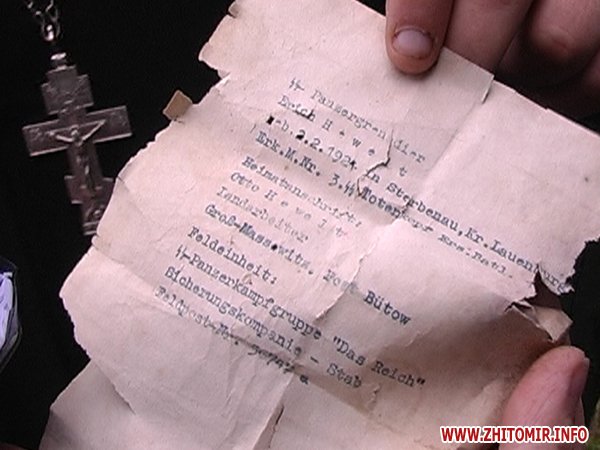 ᛋᛋ- Panzergrenadier
Erich H e w e l t
geb. 2.2.1924 in Sterbenau, Kr. Lauenburg
Erk.M.Nr. 3.ᛋᛋ Totenkopf Ers.Batl.
Heimatanschrift:
Otto H e w e l t
Landarbeiter
Groß-Massowitz. Post Bütow
Feldeinheit:
ᛋᛋ-Panzerkampfgruppe "Das Reich"
Sicherungskompanie - Stab
Feldpost-Nr.
WWW.ZHITOMIR.INFO